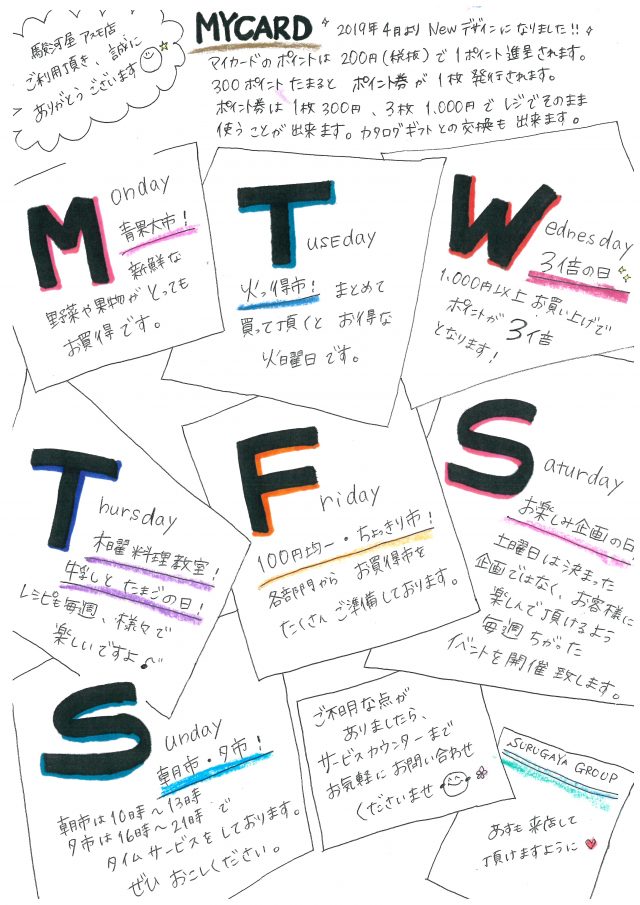 駿河屋 アスモ店
ご利用頂き、誠に
ありがとうございます
MYCARD
2019年4月より Newデザインになりました!!
マイカードのポイントは 200円(税抜)で 1ポイント進呈されます。
300ポイントたまると ポイント券が 1枚 発行されます。
ポイント券は 1枚 300円、3枚 1.000円で レジでそのまま
使うことが出来ます。カタログギフトとの交換も 出来ます。
Monday
青果大市!
新鮮な
野菜や果物がとっても
お買得です。
Tuseday
火っ得市! まとめて
買って頂くと お得な
火曜日です。
Wednesday
3倍の日
1.000円以上 お買い上げで
ポイントが 3倍
となります!
Thursday
木曜 料理教室!
牛乳と たまごの日!
レシピも毎週、様々で
楽しいですよ
Friday
100円均一・ちょっきり市!
各部門から お買得市を
たくさんご準備しております。
Saturday
お楽しみ企画の日
土曜日は決まった
企画ではなく、お客様に
楽しんで頂けるよう
毎週 ちがった
イベントを開催致します。
Sunday
朝市・夕市!
朝市は10時〜13時
夕市は16時〜21時で
タイムサービスをしております。
ぜひ おこしください。
ご不明な点が
ありましたら、
サービスカウンターまで
お気軽にお問い合わせ
くださいませ
SURUGAYA GROUP
あすも 来店して
頂けますように